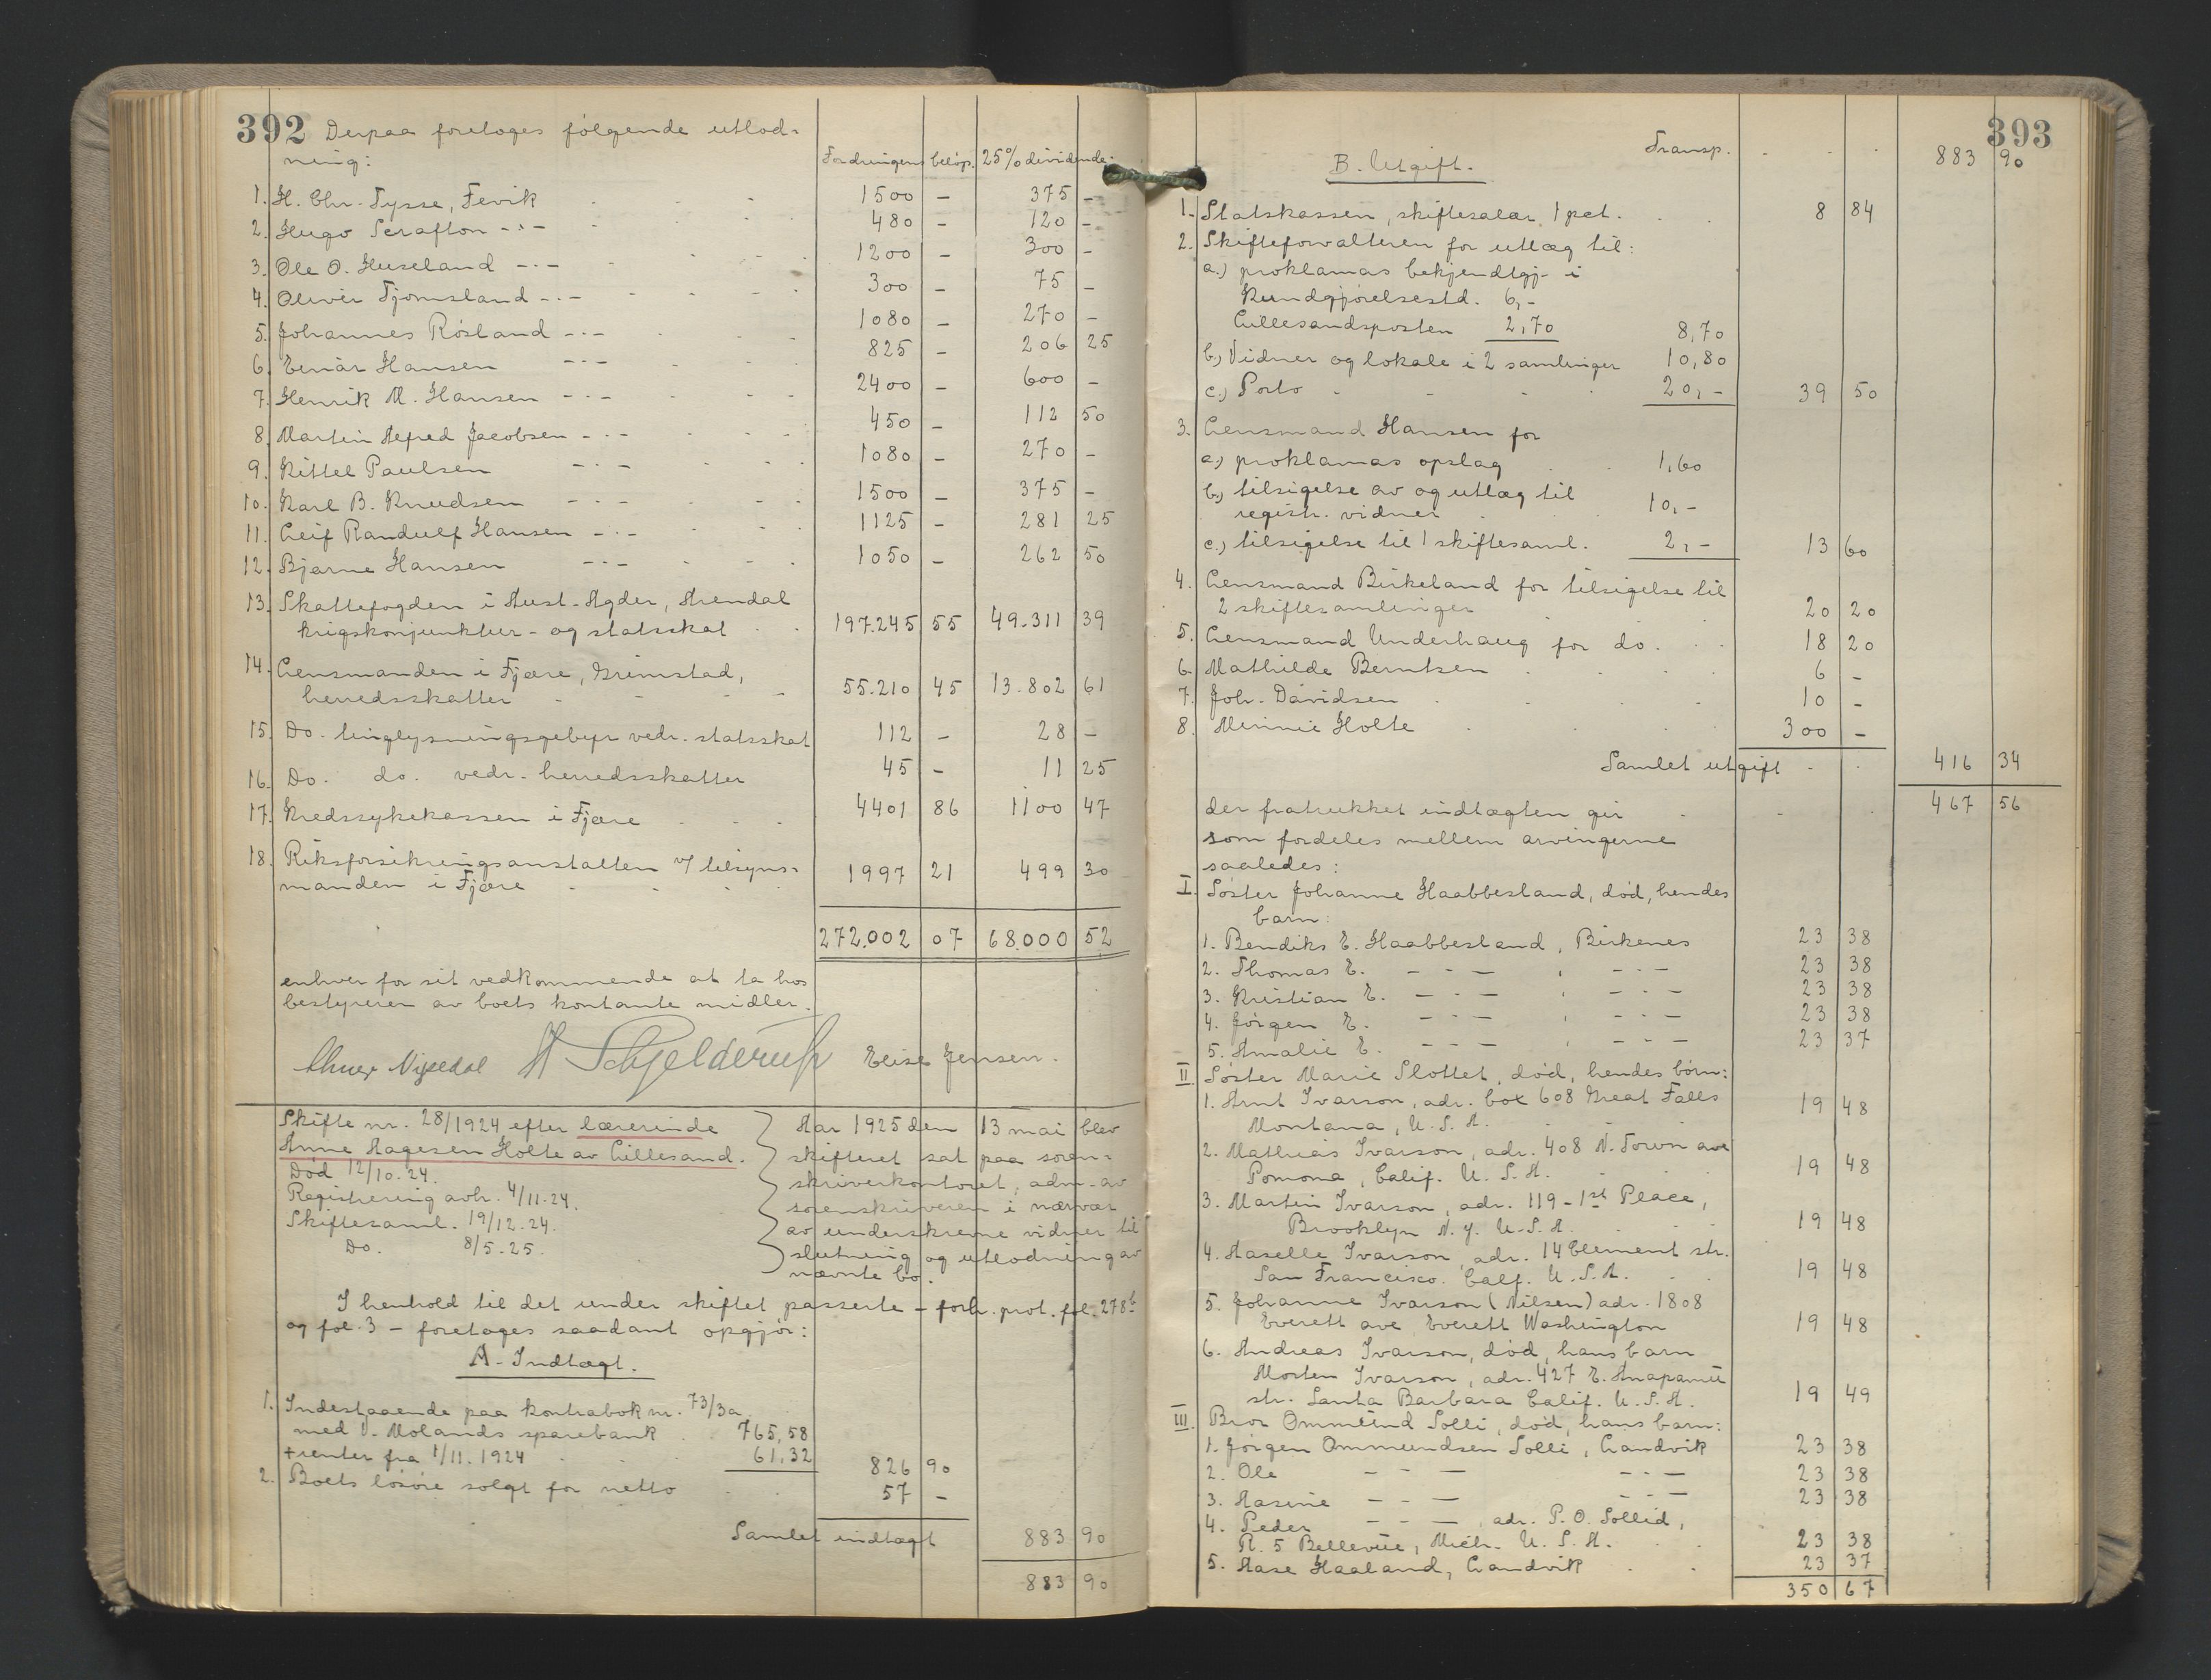 392 Derpaa foretages følgende utlod-
ning:
Fordringens beløp. 25% dividende.
1. H. Chr. Tysse, Fevik 1500 – 375 –
2. Hugo Serafton -"- 480 – 120 –
3. Ole O. Huseland -"- 1200 – 300 –
4. Oliver Tjomsland -"- 300 – 75 –
5. Johannes Røsland -"- 1080 – 270 –
6. Einar Hansen -"- 825 – 206 25
7. Henrik M. Hansen -"- 2400 – 600 –
8. Martin Alfred Jacobsen -"- 450 – 112 50
9. Kittel Paulsen -"- 1080 – 270 –
10. Karl B. Knudsen -"- 1500 – 375 –
11. Leif Randulf Hansen -"- 1125 – 281 25
12. Bjarne Hansen -"- 1050 – 262 50
13. Skattefogden i Aust-Agder, Arendal
krigskonjunktur- og statsskat 197.245 55 49.311 39
14. Lensmanden i Fjære, Grimstad,
herredsskatter 55.210 45 13.802 61
15. Do. tinglysningsgebyr vedr. statsskat 112 – 28 –
16. Do. do. vedr. herredsskatter 45 – 11 25
17. Kredssykekassen i Fjære 4401 86 1100 47
18. Riksforsikringsanstalten v/ tilsyns-
manden i Fjære 1997 21 499 30
272.002 07 68.000 52
enhver for sit vedkommende at ta hos
bestyreren av boets kontante midler.
H Schjelderup Elise Jensen.
Skifte nr. 28/1924 efter lærerinde
Anne Aagesen Holte av Lillesand.
Død 12/10.24.
Registrering avh. 4/11.24.
Skiftesaml. 19/12.24.
Do. 8/5.25.
Aar 1925 den 13 mai blev
skifteret sat paa soren-
skriverkontoret, adm. av
sorenskriveren i nærvær
av underskrevne vidner til
slutning og utlodning av
nævnte bo.
I henhold til det under skiftet passerte – forh. prot. fol. 278b
og fol. 3 – foretages saadant opgjør:
A. Indtægt.
1. Indestaaende paa kontrabok nr. 73/3a
med V. Molands sparebank 765,58
+ renter fra 1/11.1924 61,32 826 90
2. Boets løsøre solgt for netto 57 –
Samlet indtægt 883 90
883 90
393
Transp. 883 90
B. Utgift.
1. Statskassen, skiftesalær 1 pct. 8 84
2. Skifteforvalteren for utlæg til:
a.) proklamas bekjendtgj. i
Kundgjørelsestid. 6,–
Lillesandsposten 2,70 8,70
b.) Vidner og lokale i 2 samlinger 10,80
c.) Porto 20,– 39 50
3. Lensmand Hansen for
a.) proklamas opslag 1,60
b.) tilsigelse av og utlæg til
registr. vidner 10,–
c.) tilsigelse til 1 skiftesaml. 2,– 13 60
4. Lensmand Birkeland for tilsigelse til
2 skiftesamlinger 20 20
5. Lensmand Underhaug for do. 18 20
6. Mathilde Berntsen 6 –
7. Joh. Davidsen 10 –
8. Minnie Holte 300 –
Samlet utgift 416 34
der fratrukket indtægten gir 467 56
som fordeles mellem arvingerne
saaledes:
I. Søster Johanne Haabbesland, død, hendes
barn:
1. Bendiks E. Haabbesland, Birkenes 23 38
2. Thomas E. -"- , -"- 23 38
3. Kristian E. -"- , -"- 23 38
4. Jørgen E. -"- , -"- 23 38
5. Amalie E. -"- , -"- 23 37
II. Søster Marie Slottet, død, hendes børn:
1. Arnt Ivarson, adr. box 608 Great Falls
Montana, U.S.A. 19 48
2. Mathias Ivarson, adr. 408 N. Town ave
Pomona, Calif. U.S.A. 19 48
3. Martin Ivarson, adr. 119 - 1st Place,
Brooklyn N.Y. U.S.A. 19 48
4. Aaselle Ivarson, adr. 14 Clement str.
San Francisco. Calf. U.S.A. 19 48
5. Johanne Ivarson (Nilsen) adr. 1808
Everett ave Everett Washington 19 48
6. Andreas Ivarson, død, hans barn
Morten Ivarson, adr. 427 E. Anapamü
str. Santa Barbara Calif. U.S.A. 19 49
III. Bror Ommund Solli, død, hans barn:
1. Jørgen Ommundsen Solli, Landvik 23 38
2. Ole -"- -"- 23 38
3. Aasine -"- -"- 23 38
4. Peder -"- , adr. P.O. Sollid,
R. 5 Bellevue, Mich. U.S.A. 23 38
5. Aase Haaland, Landvik 23 37
350 67